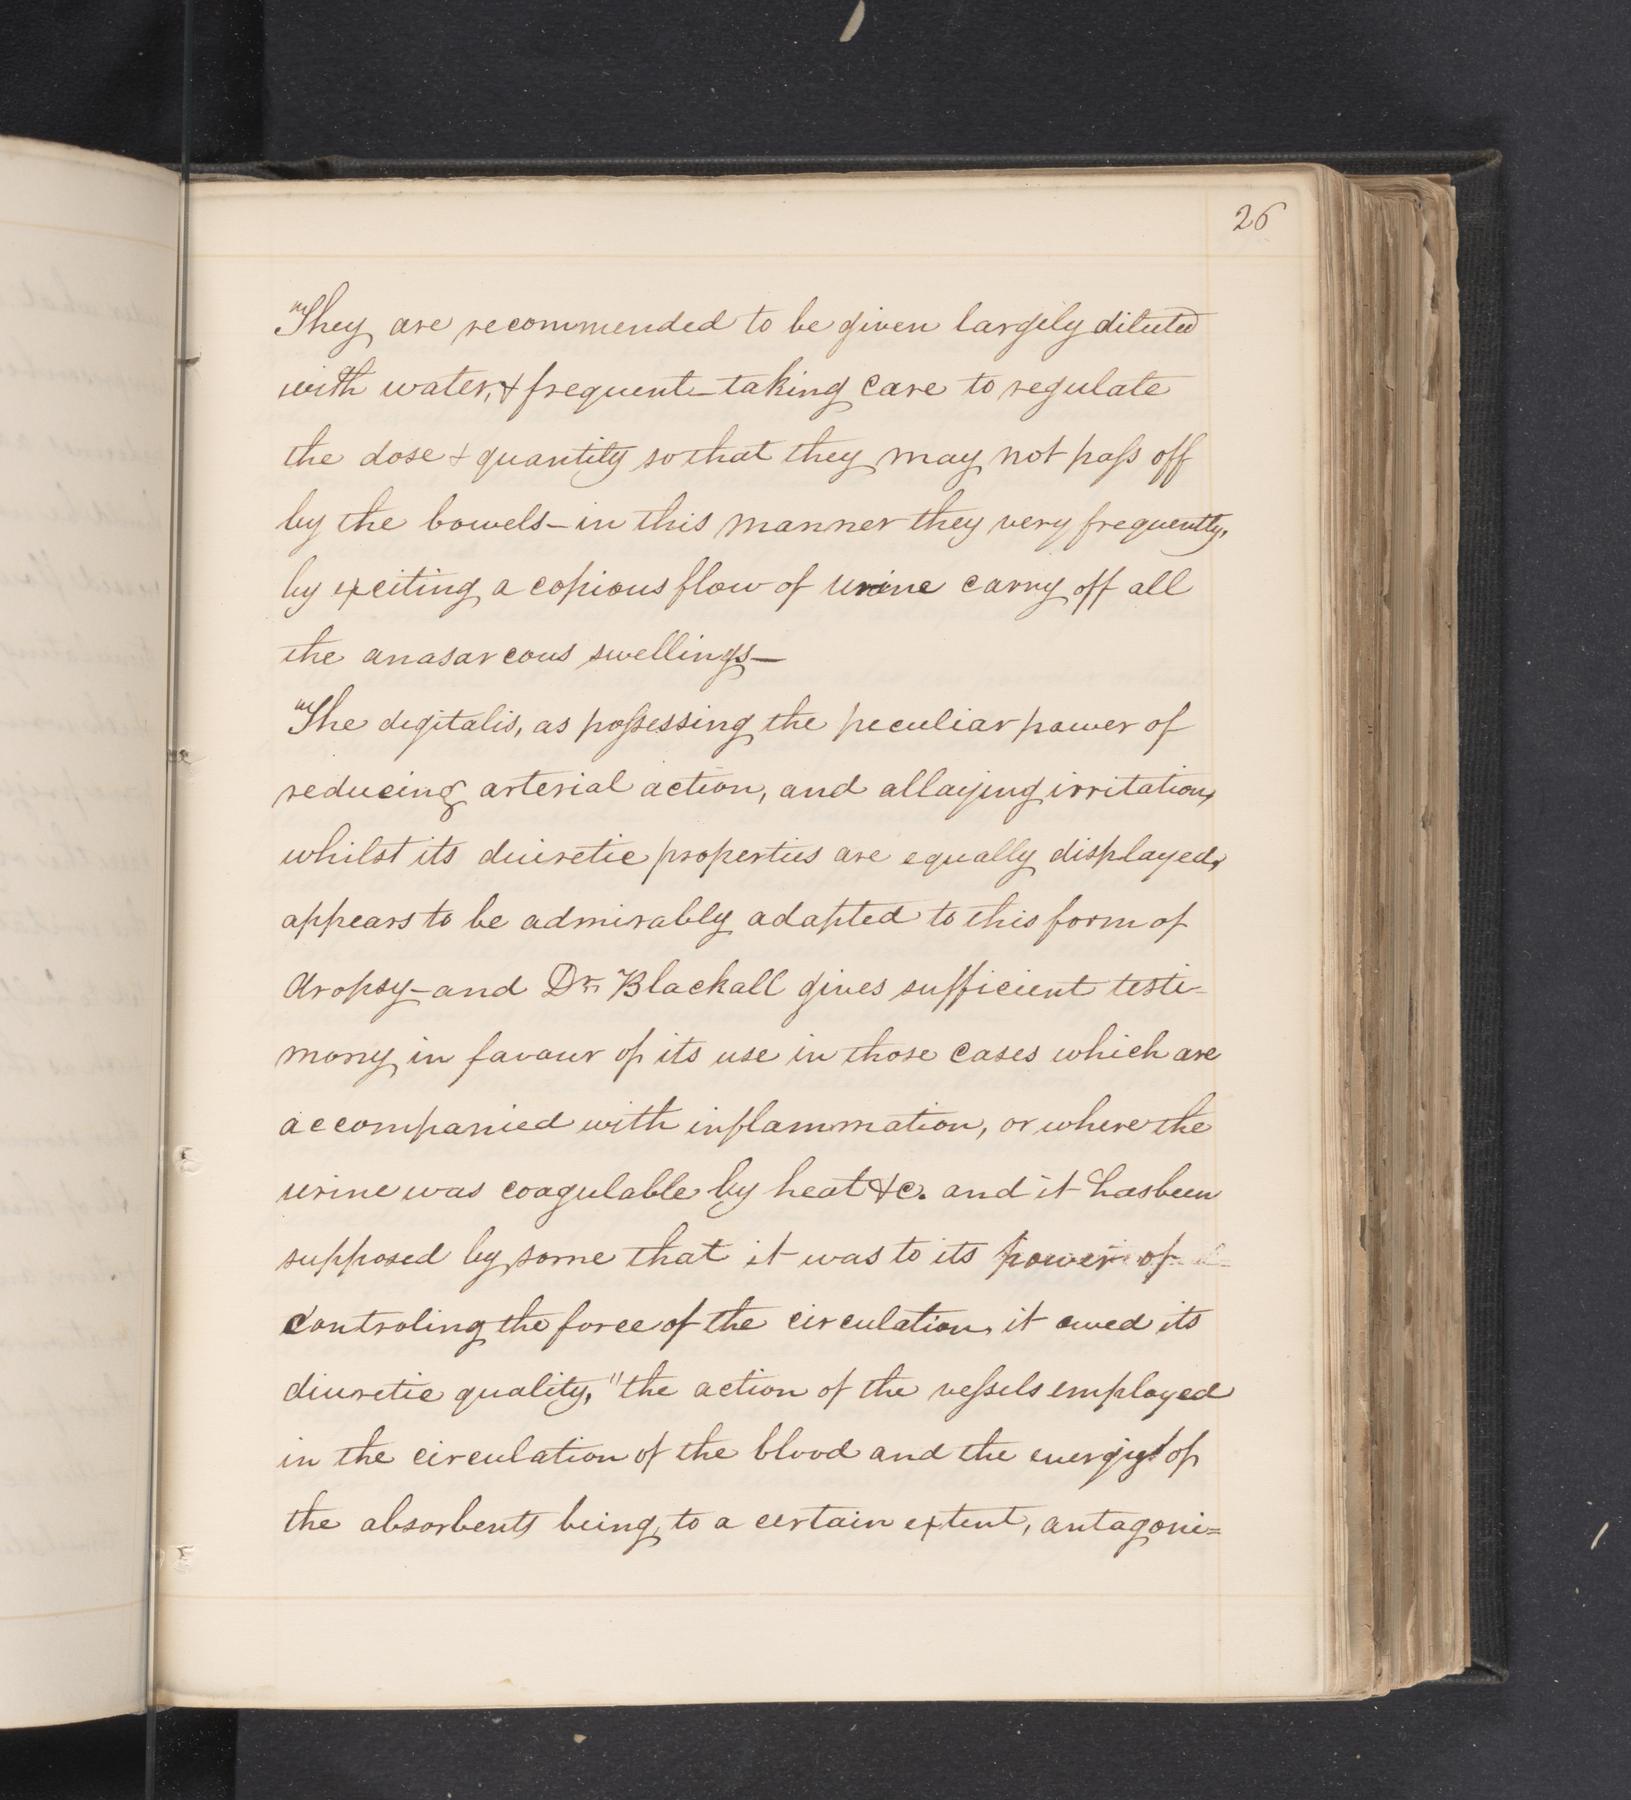 26
They are recommended to be given largely diluted
with water, & frequent—taking care to regulate
the dose & quantity so that they may not paſs off
by the bowels—in this manner they very frequently,
by exciting a copious flow of urine carry off all
the anasarcous swellings—
The digitalis, as poſsessing the peculiar power of
reducing arterial action, and allaying irritation,
whilst its diuretic properties are equally displayed,
appears to be admirably adapted to this form of
dropsy—and Dr. Blackall gives sufficient testi-
mony in favour of its use in those cases which are
accompanied with inflammation, or where the
urine was coagulable by heat &c. and it has been
supposed by some that it was to its power of
controling the force of the circulation, it owed its
diuretic quality, "the action of the veſsels employed
in the circulation of the blood and the energy of
the absorbents being, to a certain extent, antagoni=